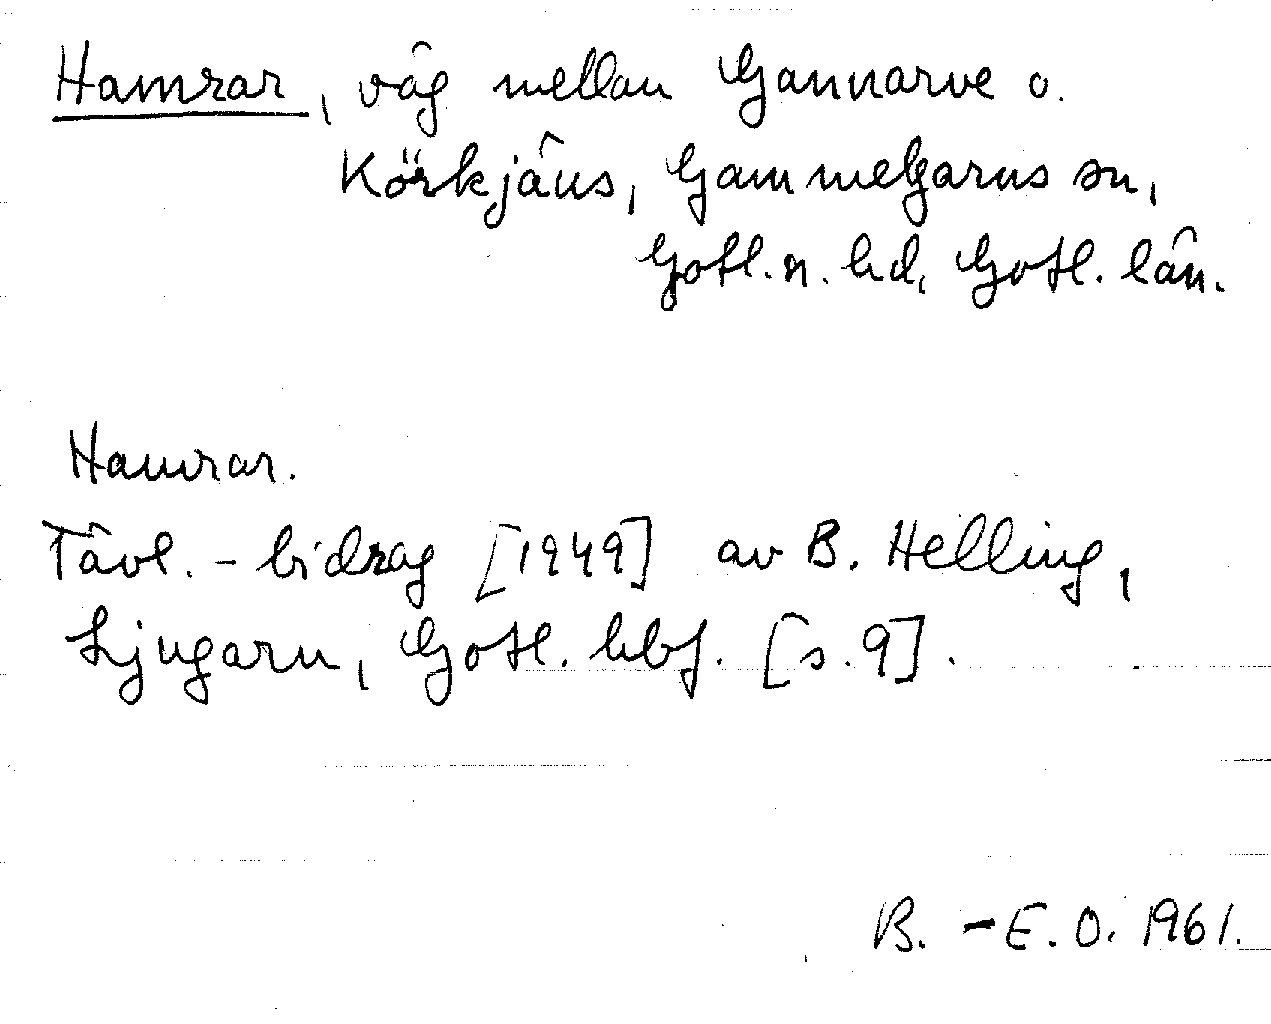 Hamrar, väg mellan Gannarve o.
Körkjäus, Gammelgarns sn,
Gotl. n. hd, Gotl. län.
Hamrar.
Tävl.-bidrag [1949] av B. Helling,
Ljugarn, Gotl. hbf. [s. 9].
B.-E. O. 1961.